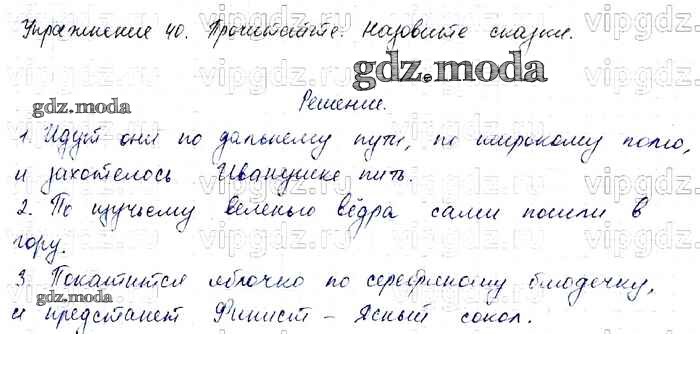 Упражнение 40. Прочитайте. Назовите сказки.
gdz.moda
Решение.
gdz.moda
1. Идут они по дальнему пути, по широкому полю,
и захотелось Иванушке пить.
2. По щучьему веленью вёдра сами пошли в
гору.
3. Покатится яблочко по серебряному блюдечку,
gdz.moda
и предстанет Финист - Ясный сокол.